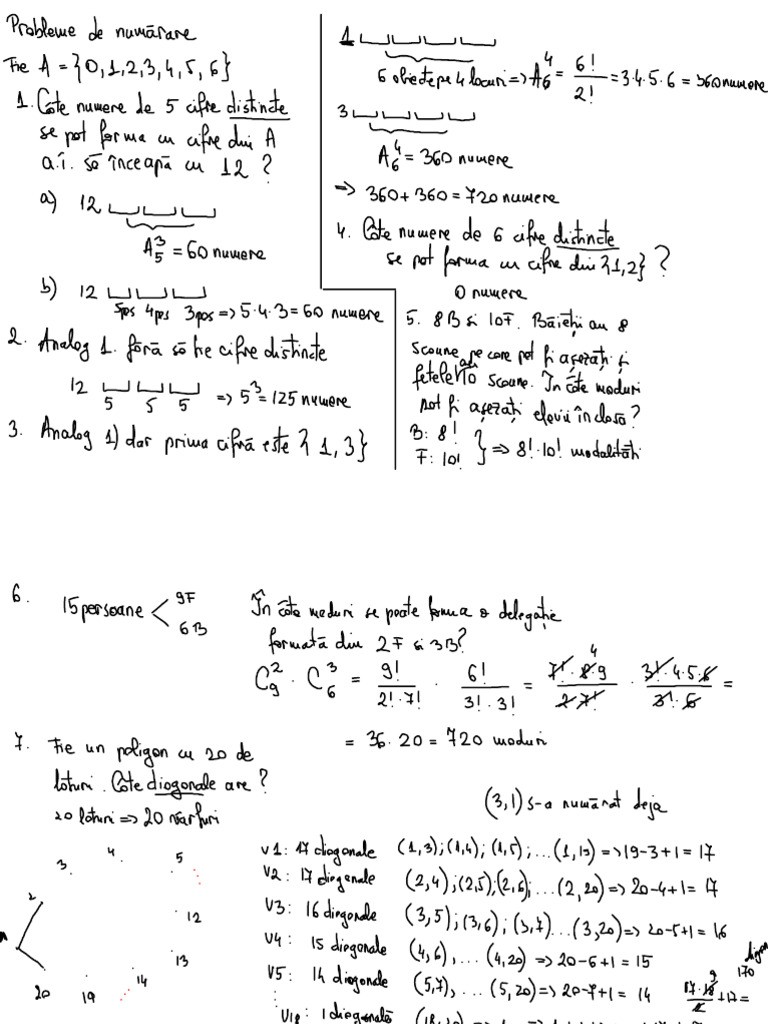 Probleme de numărare
Fie A = {0,1,2,3,4,5,6}
1. Câte numere de 5 cifre distincte
se pot forma cu cifre din A
a.î. să înceapă cu 12 ?
a) 12
A₅³ = 60 numere
b) 12
5pos 4pos 3pos => 5·4·3 = 60 numere
2. Analog 1. fără să fie cifre distincte
12
5 5 5 => 5³ = 125 numere
3. Analog 1) dar prima cifră este {1,3}
1
6 obiecte pe 4 locuri => A₆⁴ = 6!/2! = 3·4·5·6 = 360 numere
3
A₆⁴ = 360 numere
=> 360 + 360 = 720 numere
4. Câte numere de 6 cifre distincte
se pot forma cu cifre din {1,2} ?
0 numere
5. 8B si 10F. Băieții au 8
scaune pe care pot fi așezați și
fetele au 10 scaune. În câte moduri
pot fi așezați elevii în clasă?
B: 8!
F: 10! } => 8!·10! modalități
6. 15 persoane < 9F
6B
În câte moduri se poate forma o delegație
formată din 2F si 3B?
C₉² · C₆³ = 9!/(2!·7!) · 6!/(3!·3!) = (7!·8·9)/(2·7!) 4 · (3!·4·5·6)/(3!·6) =
= 36·20 = 720 moduri
7. Fie un poligon cu 20 de
laturi. Câte diagonale are ?
20 laturi => 20 vârfuri
(3,1) s-a numărat deja
V1: 17 diagonale (1,3);(1,4);(1,5);...(1,19) => 19-3+1 = 17
V2: 17 diagonale (2,4);(2,5);(2,6);...(2,20) => 20-4+1 = 17
V3: 16 diagonale (3,5);(3,6);(3,7)...(3,20) => 20-5+1 = 16
V4: 15 diagonale (4,6),...(4,20) => 20-6+1 = 15
V5: 14 diagonale (5,7),...(5,20) => 20-7+1 = 14
V18: 1 diagonală
170
17·18/2 9 +17 =
2
3
4
5
12
13
14
19
20